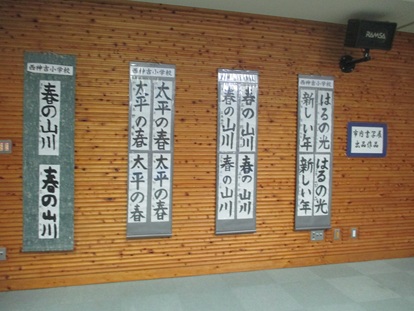 西神吉小学校
春の山川
春の山川
西神吉小学校
太平の春
太平の春
太平の春
太平の春
春の山川
春の山川
春の山川
春の山川
西神吉小学校
はるの光
新しい年
はるの光
新しい年
市内書写展
出品作品
RAMSA